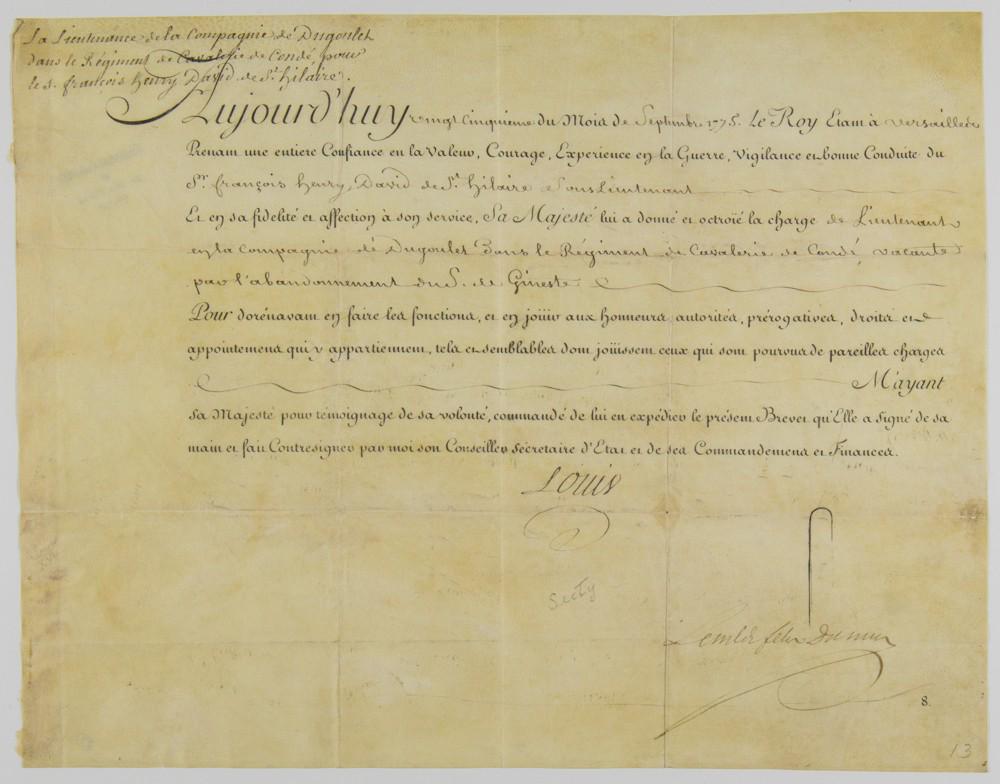 La Lieutenance de la Compagnie de Dugoulet
dans le Régiment de Cavalerie de Condé, pour
le s. françois henry David de St. hilaire.
Aujourd'huy vingt Cinquieme du Mois de Septembre 1775. Le Roy Etant à Versailles
Prenant une entiere Confiance en la Valeur, Courage, Experience en la Guerre, Vigilance et bonne Conduite du
Sr. françois henry, David de St. hilaire Sous Lieutenant
Et en sa fidelité et affection à son service, Sa Majesté lui a donné et octroïé la charge de Lieutenant
en la Compagnie de Dugoulet Dans le Régiment de Cavalerie de Condé, vacante
par l'abandonnement du S. de Gineste
Pour dorénavant en faire les fonctions, et en joüir aux honneurs, autorités, prérogatives, droits et
appointemens qui y appartiennent, tels et semblables dont joüissent ceux qui sont pourvus de pareilles charges
M'ayant
Sa Majesté pour témoignage de sa volonté, commandé de lui en expédier le présent Brevet qu'Elle a signé de sa
main et fait Contresigner par moi son Conseiller Secretaire d'Etat et de ses Commandemens et Finances.
Louis
Secty
8.
13